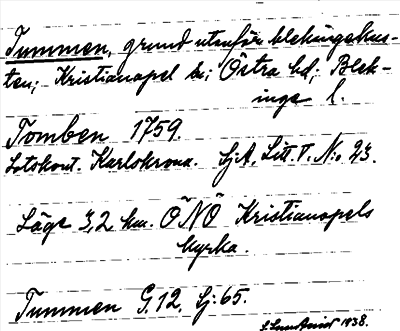 Tummen, grund utanför blekingskus-
ten; Kristianopel sn; Östra hd; Blek-
inge l.
Tomben 1759.
Lotskont. Karlskrona. SjA, Litt. V. N:o 23.
Läge 3,2 km. ÖNÖ Kristianopels
kyrka.
Tummen G.12. Sj:65.
1938.